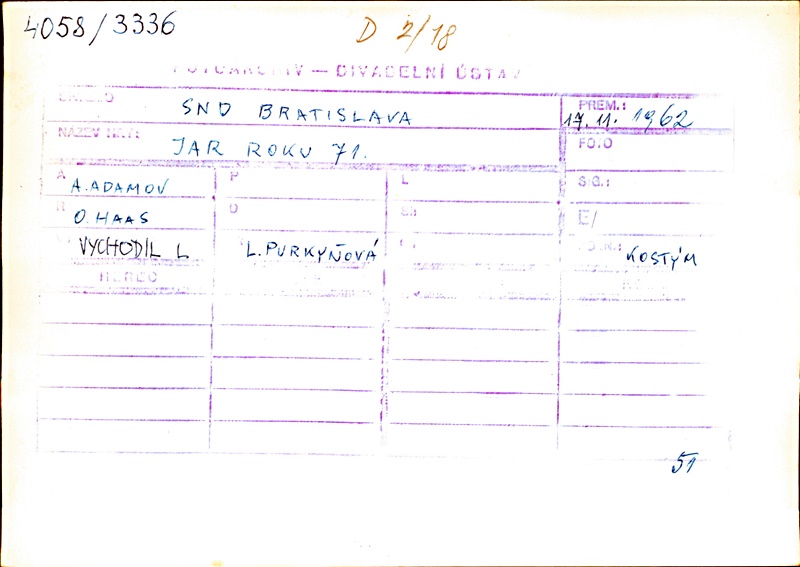 4058/3336
D 2/18
FOTOARCHIV — DIVADELNÍ ÚSTAV
DIVADLO SND BRATISLAVA
PREM.: 17. 11. 1962
NÁZEV HRY: JAR ROKU 71.
FOTO
A A. ADAMOV
P
L
SIG.:
R O. HAAS
O
E/
VYCHODIL L
L. PURKYŇOVÁ
KOSTÝM
HEREC
51